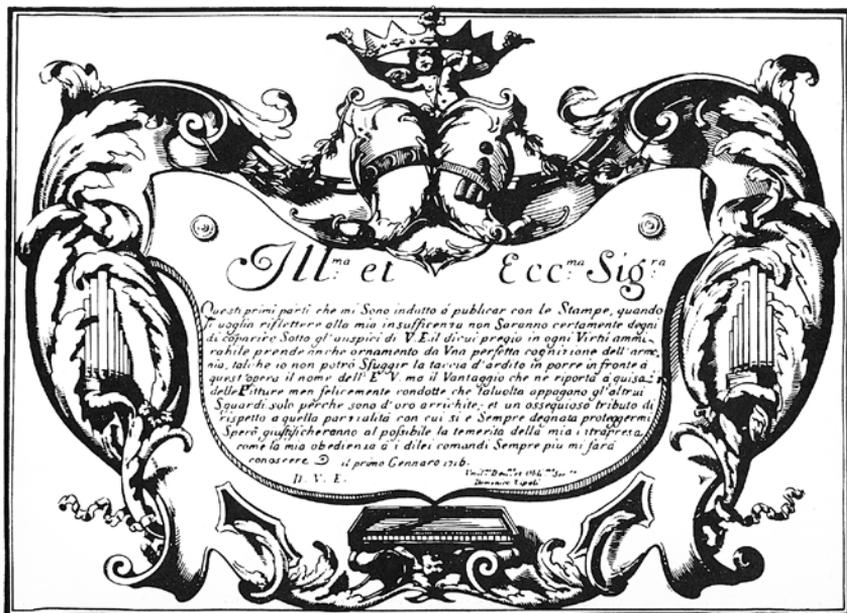 Ill.ma et Ecc.ma Sig.ra
Questi primi parti che mi Sono indutto á publicar con le Stampe, quando
si voglia riflettere alla mia insufficenza non Saranno certamente degni
di coparire Sotto gl'auspici di V.E. il di cui pregio in ogni Virtú ammi-
rabile prende anche ornamento da Vna perfetta cognizione dell'armo-
nia, talche io non potró Sfuggir la taccia d'ardito in porre in fronte á
quest'opera il nome dell'E V. ma il Vantaggio che ne riporta á guisa
delle Pitture men felicemente condotte che talvolta appagano gl'altrui
Sguardi solo perche sono d'oro arrichite; et un ossequioso tributo di
rispetto a quella parzialitá con cui si e Sempre degnata proteggermi
Spero giustificheranno al possibile la temerita della mia itrapresa,
come la mia obedienza á i di lei comandi Sempre piu mi fará
conoscere il primo Gennaro 1716.
D. V. E.
Domenico Zipoli